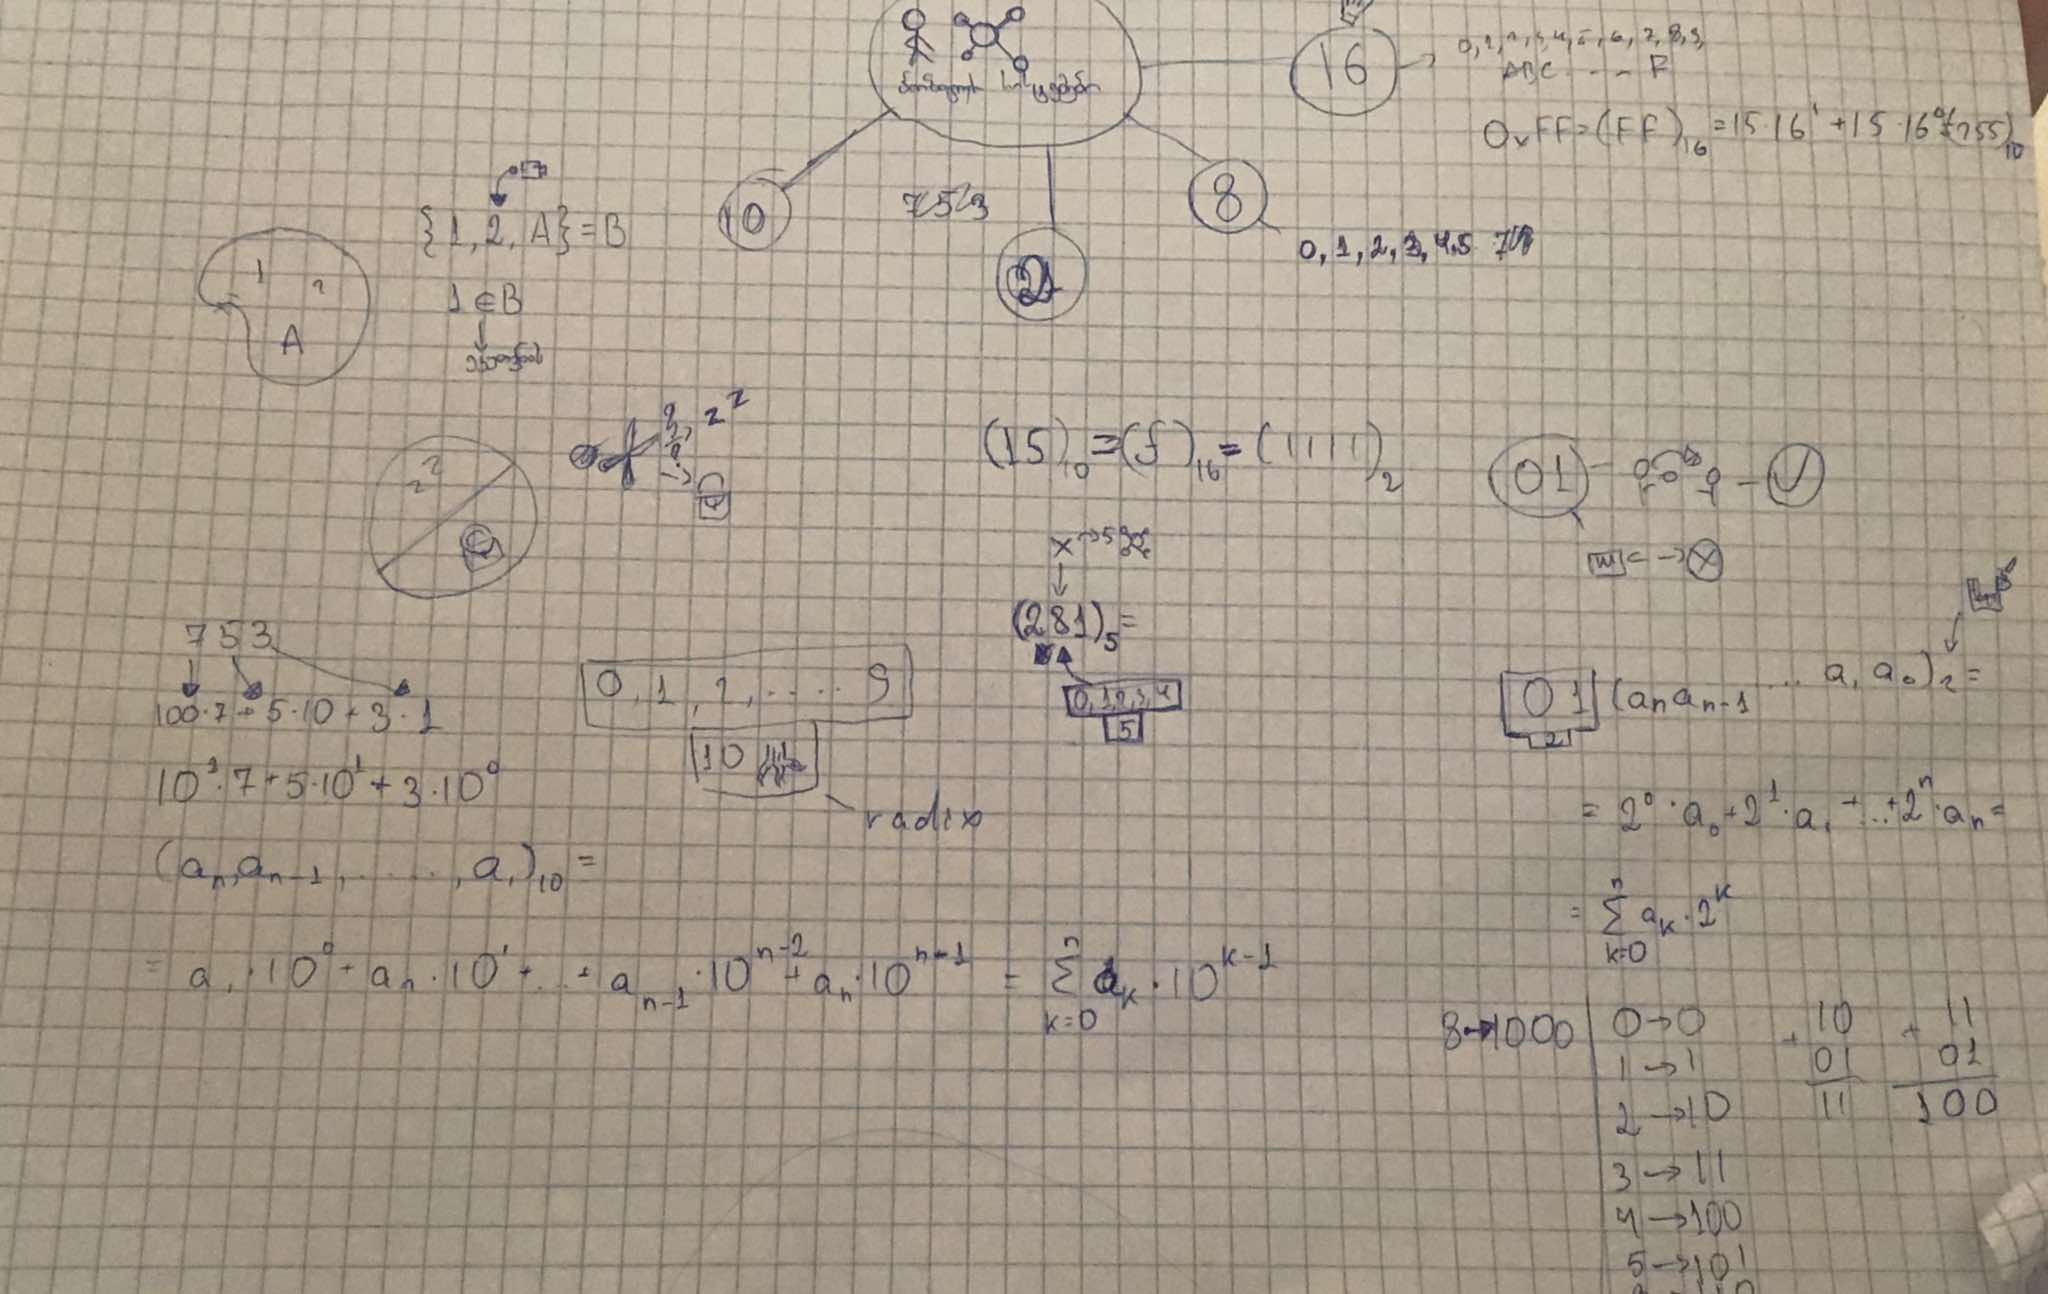 16
0,1,2,3,4,5,6,7,8,9,
ABC ... F
0xFF=(FF)₁₆=15·16¹+15·16⁰=(255)₁₀
10
753
2
8
0,1,2,3,4,5 7
{1,2,A}=B
1∈B
1 2
A
2²
2²
(15)₁₀=(f)₁₆=(1111)₂
01
x→5
(281)₅=
0,1,2,3,4
5
753
100·7+5·10+3·1
10²·7+5·10¹+3·10⁰
0,1,2,.....9
10
radix
(aₙ,aₙ₋₁,......,a₁)₁₀=
=a₁·10⁰+aₙ·10¹+...+aₙ₋₁·10ⁿ⁻²+aₙ·10ⁿ⁻¹ = Σ aₖ·10ᵏ⁻¹
n
k=0
01 (aₙaₙ₋₁ ... a₁a₀)₂=
2
=2⁰·a₀+2¹·a₁+...+2ⁿ·aₙ=
n
=Σ aₖ·2ᵏ
k=0
8→1000
0→0
1→1
2→10
3→11
4→100
5→101
+ 10
01
11
+ 11
01
100